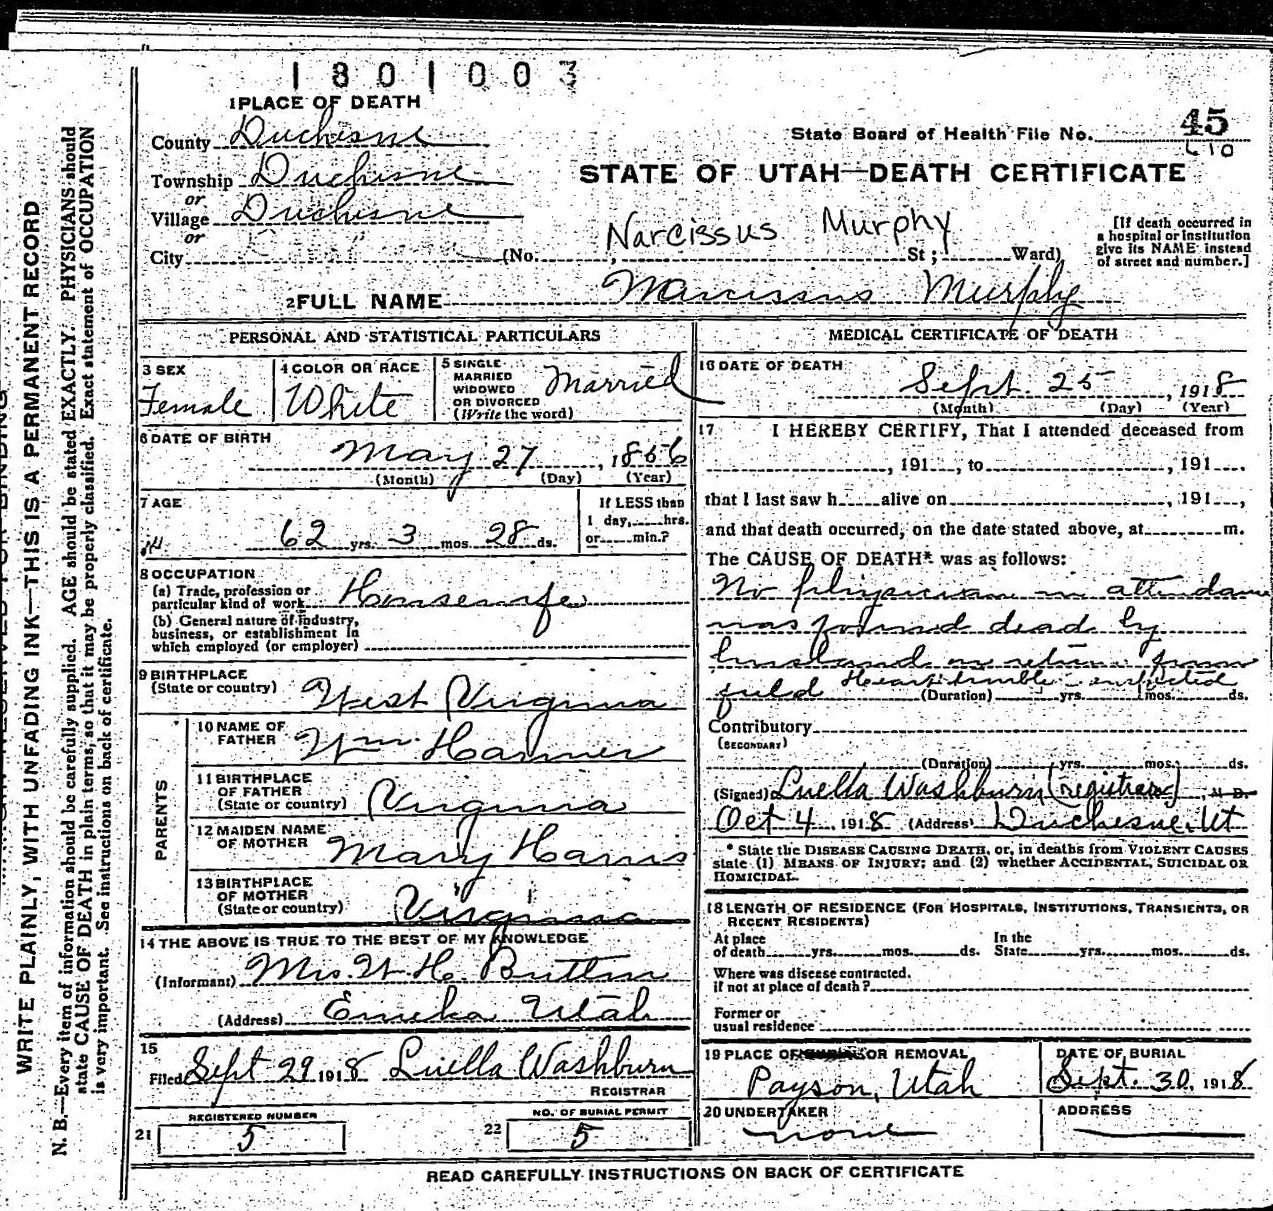 1801003
1 PLACE OF DEATH
County Duchesne
State Board of Health File No. 45
Township Duchesne
STATE OF UTAH—DEATH CERTIFICATE
or
Village Duchesne
or
Narcissus Murphy
City (No. , St; Ward)
[If death occurred in
a hospital or institution
give its NAME instead
of street and number.]
2 FULL NAME Narcissus Murphy
PERSONAL AND STATISTICAL PARTICULARS
3 SEX
Female
4 COLOR OR RACE
White
5 SINGLE
MARRIED
WIDOWED
OR DIVORCED
(Write the word)
Married
6 DATE OF BIRTH
May 27, 1856
(Month) (Day) (Year)
7 AGE
62 yrs. 3 mos. 28 ds.
If LESS than
1 day, hrs.
or min.?
8 OCCUPATION
(a) Trade, profession or
particular kind of work Housewife
(b) General nature of industry,
business, or establishment in
which employed (or employer)
9 BIRTHPLACE
(State or country) West Virginia
PARENTS
10 NAME OF
FATHER Wm. Hanner
11 BIRTHPLACE
OF FATHER
(State or country) Virginia
12 MAIDEN NAME
OF MOTHER Mary Harris
13 BIRTHPLACE
OF MOTHER
(State or country) Virginia
14 THE ABOVE IS TRUE TO THE BEST OF MY KNOWLEDGE
(Informant) Mrs. W. H.
(Address) Eureka Utah
15
Filed Sept 29 1918 Luella Washburn
REGISTRAR
REGISTERED NUMBER
21 5
NO. OF BURIAL PERMIT
22 5
MEDICAL CERTIFICATE OF DEATH
16 DATE OF DEATH
Sept. 25, 1918
(Month) (Day) (Year)
17 I HEREBY CERTIFY, That I attended deceased from
, 191 , to , 191
that I last saw h alive on , 191 ,
and that death occurred, on the date stated above, at m.
The CAUSE OF DEATH* was as follows:
No physician in attendance
was found dead by
husband on return from
field Heart trouble
(Duration) yrs. mos. ds.
Contributory
(SECONDARY)
(Duration) yrs. mos. ds.
(Signed) Luella Washburn (registrar), M.D.
Oct 4 1918 (Address) Duchesne, Ut
* State the DISEASE CAUSING DEATH, or, in deaths from VIOLENT CAUSES
state (1) MEANS OF INJURY; and (2) whether ACCIDENTAL, SUICIDAL OR
HOMICIDAL.
18 LENGTH OF RESIDENCE (FOR HOSPITALS, INSTITUTIONS, TRANSIENTS, OR
RECENT RESIDENTS)
At place
of death yrs. mos. ds.
In the
State yrs. mos. ds.
Where was disease contracted,
if not at place of death?
Former or
usual residence
19 PLACE OF BURIAL OR REMOVAL
Payson, Utah
DATE OF BURIAL
Sept. 30, 1918
20 UNDERTAKER
none
ADDRESS
READ CAREFULLY INSTRUCTIONS ON BACK OF CERTIFICATE
WRITE PLAINLY, WITH UNFADING INK—THIS IS A PERMANENT RECORD
N. B.—Every item of information should be carefully supplied. AGE should be stated EXACTLY. PHYSICIANS should
state CAUSE OF DEATH in plain terms, so that it may be properly classified. Exact statement of OCCUPATION
is very important. See instructions on back of certificate.